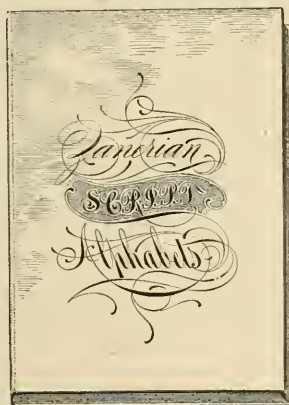 Zanerian
SCRIPT
Alphabets